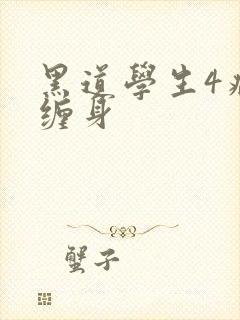 黑道學生4
缠身
蟹子